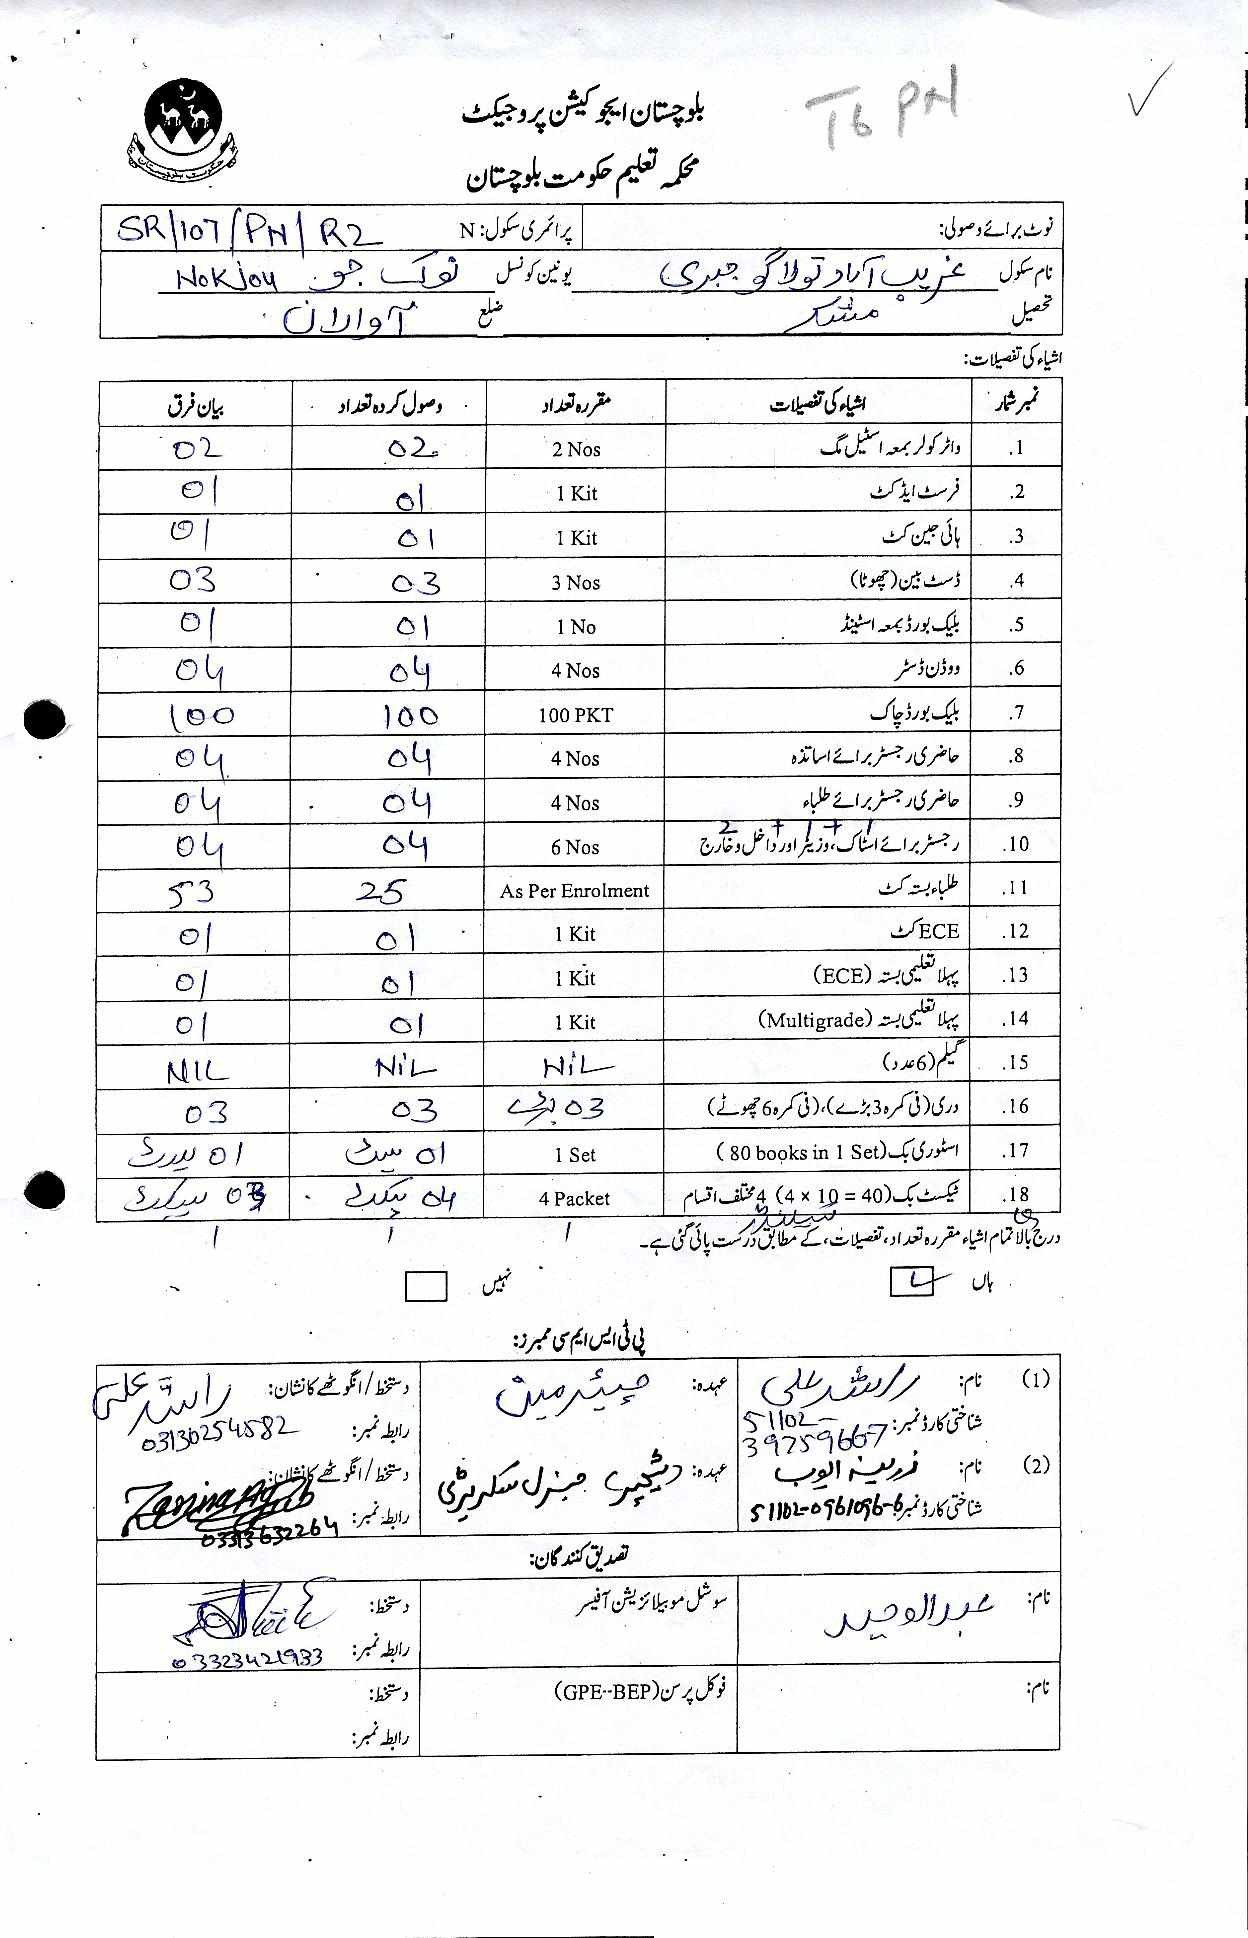 T6 PN
بلوچستان ایجوکیشن پروجیکٹ
محکمہ تعلیم حکومت بلوچستان
نوٹ برائے وصولی: پرائمری سکول: N SR/107/PN/R2
نام سکول غریب آباد تولاگو جبری یونین کونسل نوک جو Nokjou
تحصیل مشکے ضلع آواران
اشیاء کی تفصیلات:
نمبر شمار اشیاء کی تفصیلات مقررہ تعداد وصول کردہ تعداد بیان فرق
1. واٹر کولر بمعہ اسٹیل مگ 2 Nos 02 02
2. فرسٹ ایڈ کٹ 1 Kit 01 01
3. ہائی جین کٹ 1 Kit 01 01
4. ڈسٹ بین (چھوٹا) 3 Nos 03 03
5. بلیک بورڈ بمعہ اسٹینڈ 1 No 01 01
6. ووڈن ڈسٹر 4 Nos 04 04
7. بلیک بورڈ چاک 100 PKT 100 100
8. حاضری رجسٹر برائے اساتذہ 4 Nos 04 04
9. حاضری رجسٹر برائے طلباء 4 Nos 04 04
2 + 1 + 1
10. رجسٹر برائے اسٹاک، وزیٹر اور داخل و خارج 6 Nos 04 04
11. طلباء بستہ کٹ As Per Enrolment 25 53
12. ECE کٹ 1 Kit 01 01
13. پہلا تعلیمی بستہ (ECE) 1 Kit 01 01
14. پہلا تعلیمی بستہ (Multigrade) 1 Kit 01 01
15. گلیم (6 عدد) NiL NiL NIL
16. دری (فی کمرہ 3 بڑے)، (فی کمرہ 6 چھوٹے) 03 بڑے 03 03
17. اسٹوری بک (80 books in 1 Set) 1 Set 01 سیٹ 01 سیٹ
18. ٹیکسٹ بک (4 x 10 = 40) 4 مختلف اقسام 4 Packet 04 پیکٹ 03 پیکٹ
درج بالا تمام اشیاء مقررہ تعداد، تفصیلات، کے مطابق درست پائی گئی ہے۔
ہاں نہیں
پی ٹی ایس ایم سی ممبرز:
(1) نام: راشد علی عہدہ: چیئرمین دستخط / انگوٹھے کا نشان: راشد علی
شناختی کارڈ نمبر: 51102-39759667 رابطہ نمبر: 03130254582
(2) نام: زرینہ ایوب عہدہ: جنرل سکریٹری دستخط / انگوٹھے کا نشان: Zarina Ayub
شناختی کارڈ نمبر: 51102-0961096-6 رابطہ نمبر: 03313632264
تصدیق کنندگان:
نام: عبدالوحید سوشل موبیلائزیشن آفیسر دستخط:
رابطہ نمبر: 03323421933
نام: فوکل پرسن (GPE--BEP) دستخط:
رابطہ نمبر: